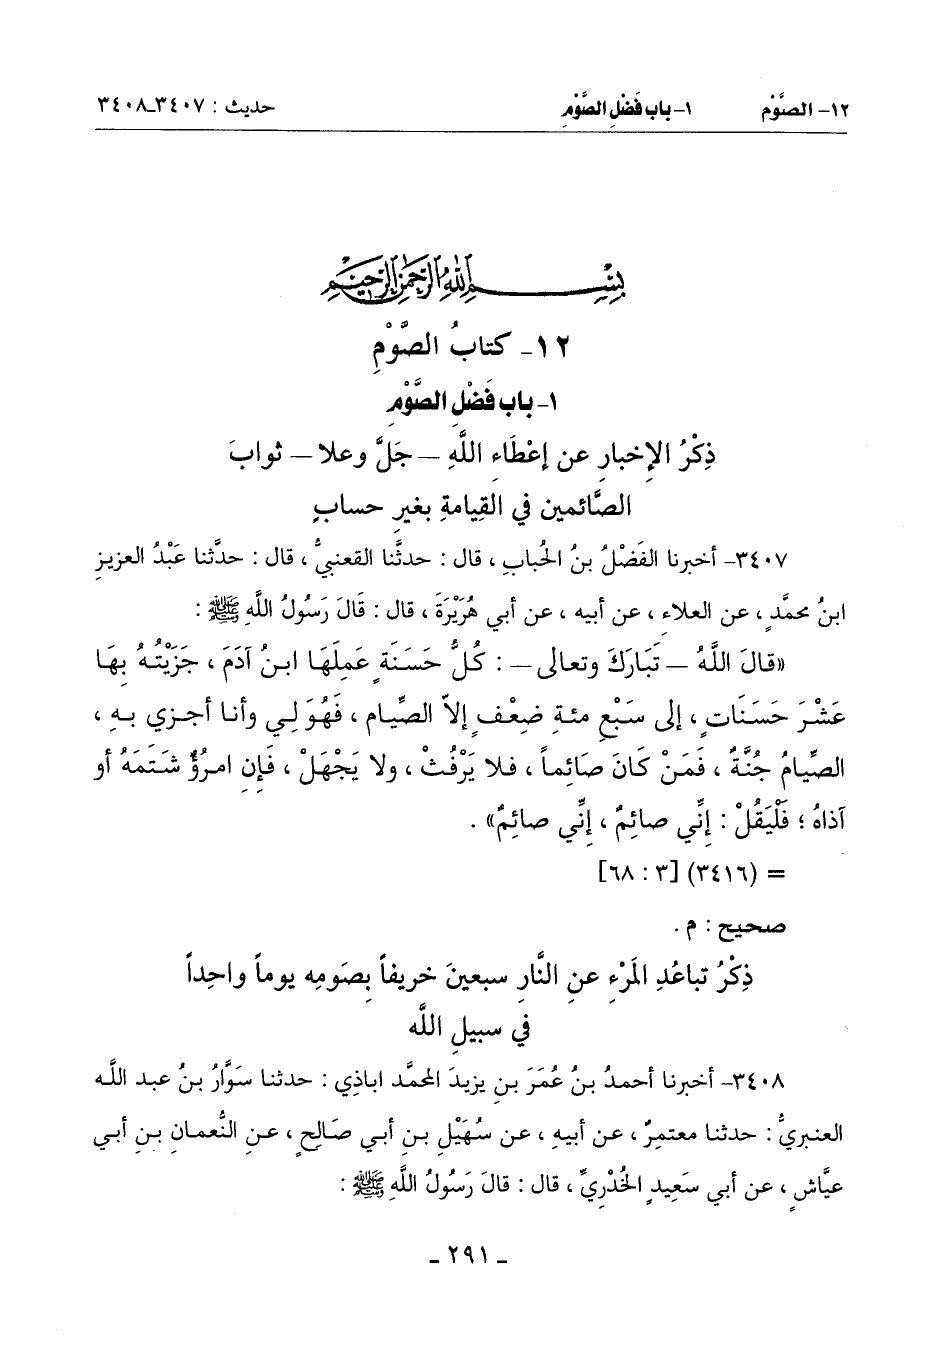 ١٢- الصَّوْم ١- باب فَضْلِ الصَّوْمِ حديث : ٣٤٠٧ـ٣٤٠٨
بِسْمِ اللهِ الرَّحْمٰنِ الرَّحِيْمِ
١٢- كتابُ الصَّوْمِ
١- باب فَضْلِ الصَّوْمِ
ذِكْرُ الإخبارِ عن إعْطَاءِ اللَّهِ – جَلَّ وعلا – ثوابَ
الصَّائمين في القِيامةِ بغيرِ حسابٍ
٣٤٠٧- أخبرنا الفَضْلُ بنُ الحُبابِ ، قال : حدثَّنا القعنبيُّ ، قال : حدَّثنا عَبْدُ العزيزِ
ابنُ محمَّدٍ ، عن العلاءِ ، عن أبيه ، عن أبي هُرَيْرَةَ ، قال : قَالَ رَسُولُ اللَّهِ ﷺ :
«قالَ اللَّهُ – تَبَارَكَ وتعالى – : كُلُّ حَسَنَةٍ عَمِلَهَا ابنُ آدَمَ ، جَزَيْتُهُ بِهَا
عَشْرَ حَسَنَاتٍ ، إلى سَبْعِ مئةِ ضِعْفٍ إلاّ الصِّيام ، فَهُوَ لِي وأنا أجزي بهِ ،
الصِّيامُ جُنَّةٌ ، فَمَنْ كَانَ صَائِماً ، فلا يَرْفُثْ ، ولا يَجْهَلْ ، فَإِنِ امرُؤٌ شَتَمَهُ أو
آذاهُ ؛ فَلْيَقُلْ : إنِّي صائِمٌ ، إنِّي صائِمٌ» .
= (٣٤١٦) [٣ : ٦٨]
صحيح : م .
ذِكْرُ تباعُدِ المَرْءِ عنِ النَّارِ سبعينَ خريفاً بِصَومِه يوماً واحِداً
في سبيلِ اللَّه
٣٤٠٨- أخبرنا أحمدُ بنُ عُمَرَ بنِ يزيدَ المحمَّد اباذي : حدثنا سَوَّارُ بنُ عبد اللَّه
العنبريُّ : حدثنا معتمِرٌ ، عن أبيهِ ، عن سُهَيْلِ بنِ أبي صَالِحٍ ، عنِ النُّعمانِ بنِ أبي
عيَّاشٍ ، عن أبي سَعِيدٍ الخُدْرِيِّ ، قال : قالَ رَسُولُ اللَّهِ ﷺ :
ـ ٢٩١ ـ